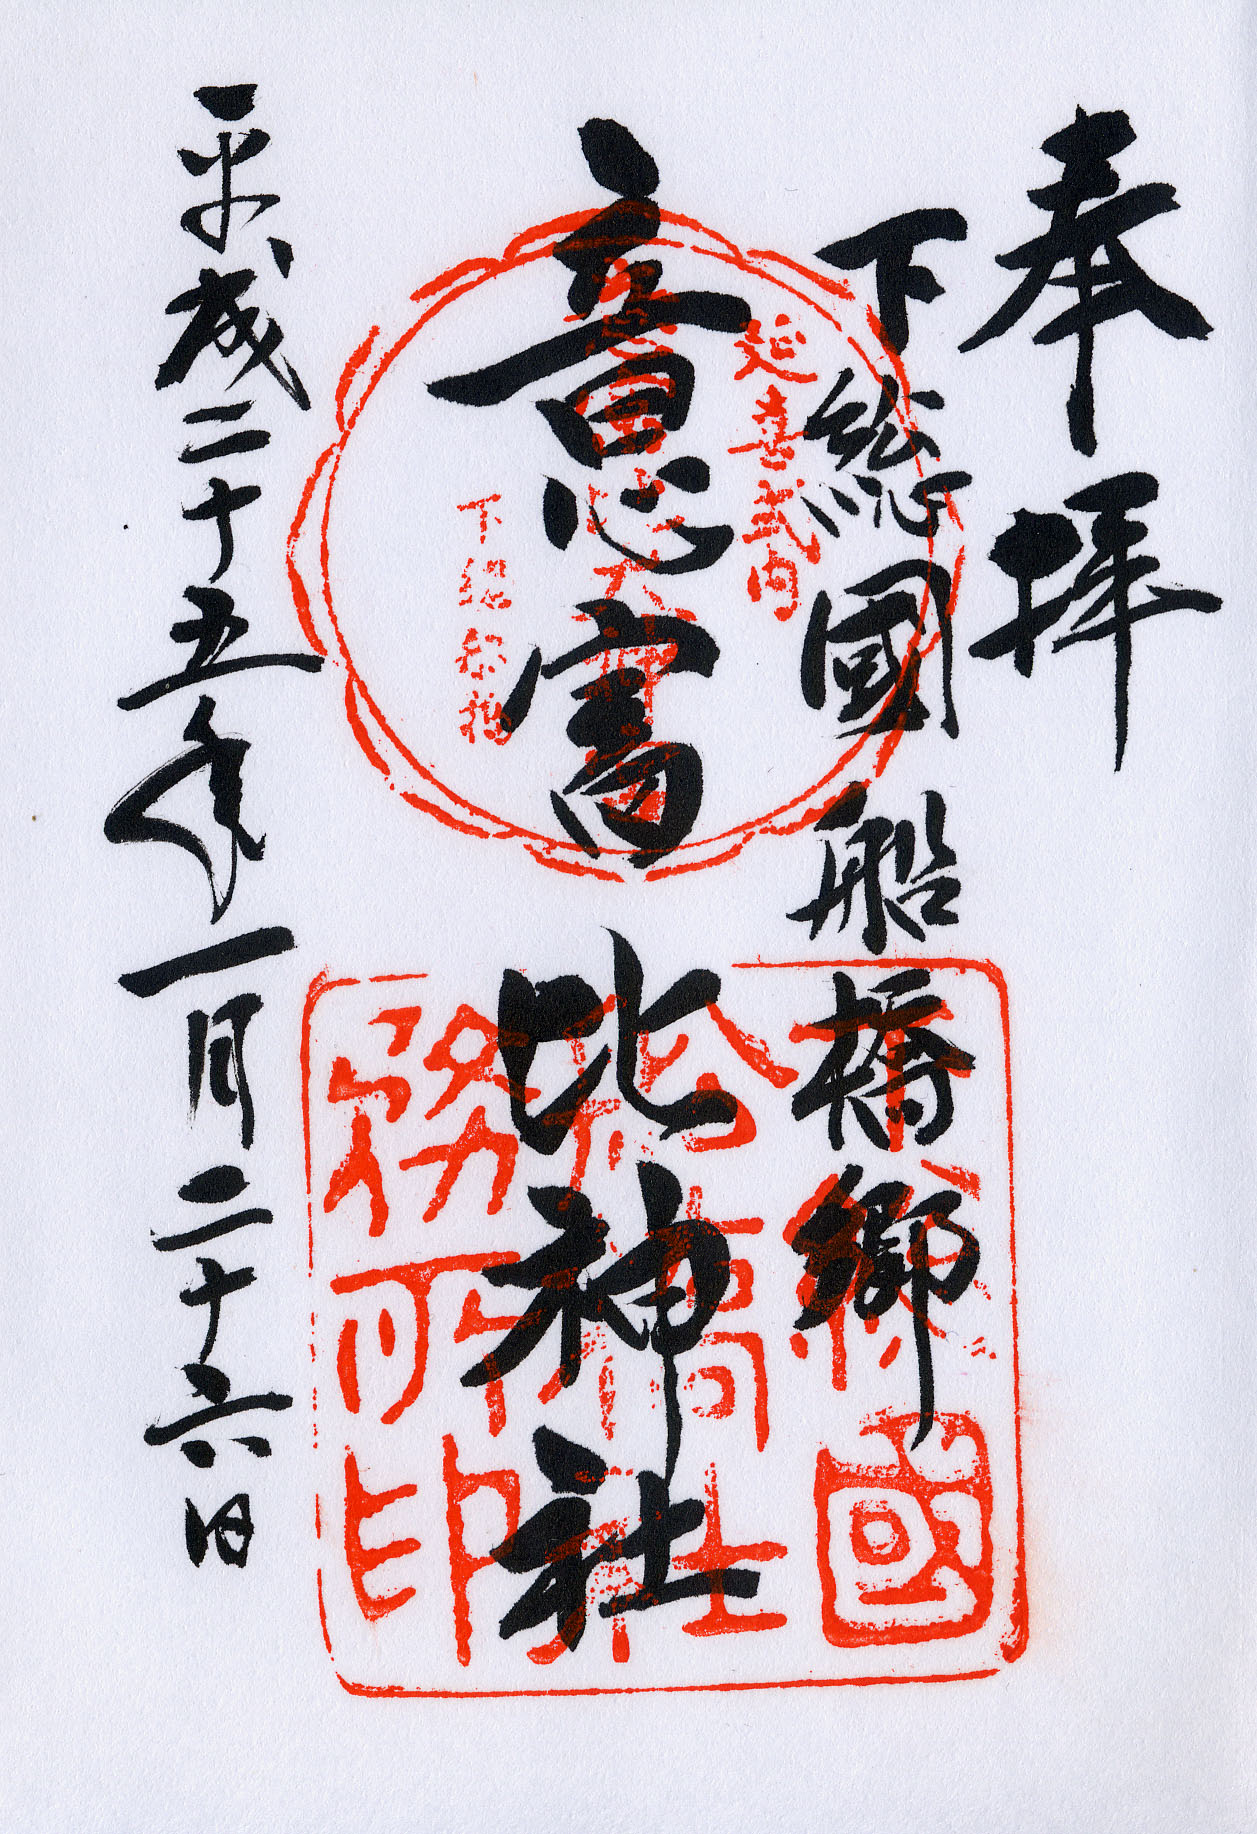 奉拝
下総國船橋郷
意富比神社
平成二十五年一月二十六日
延喜式内
意富比大神
下総船橋
下総國
船橋神社
務所印